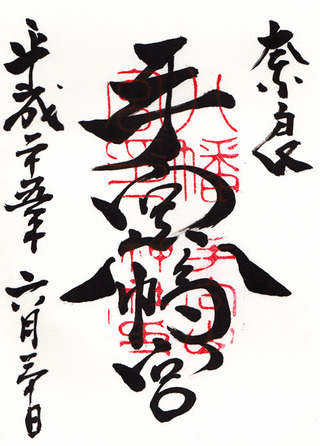 奈良
手向山八幡宮
平成二十五年六月三十日